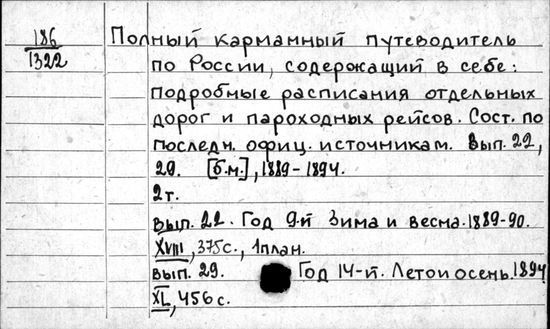 186
1322
Полный карманный путеводитель
по России, содержащий в себе:
подробные расписания отдельных
дорог и пароходных рейсов. Сост. по
последн. офиц. источникам. Вып. 22,
29. [б.м.], 1889-1894.
2 т.
Вып. 22. Год 9-й Зима и весна. 1889-90.
XVIII, 375 с., 1 план.
Вып. 29. Год 14-й. Лето и осень. 1894
XL, 456 с.